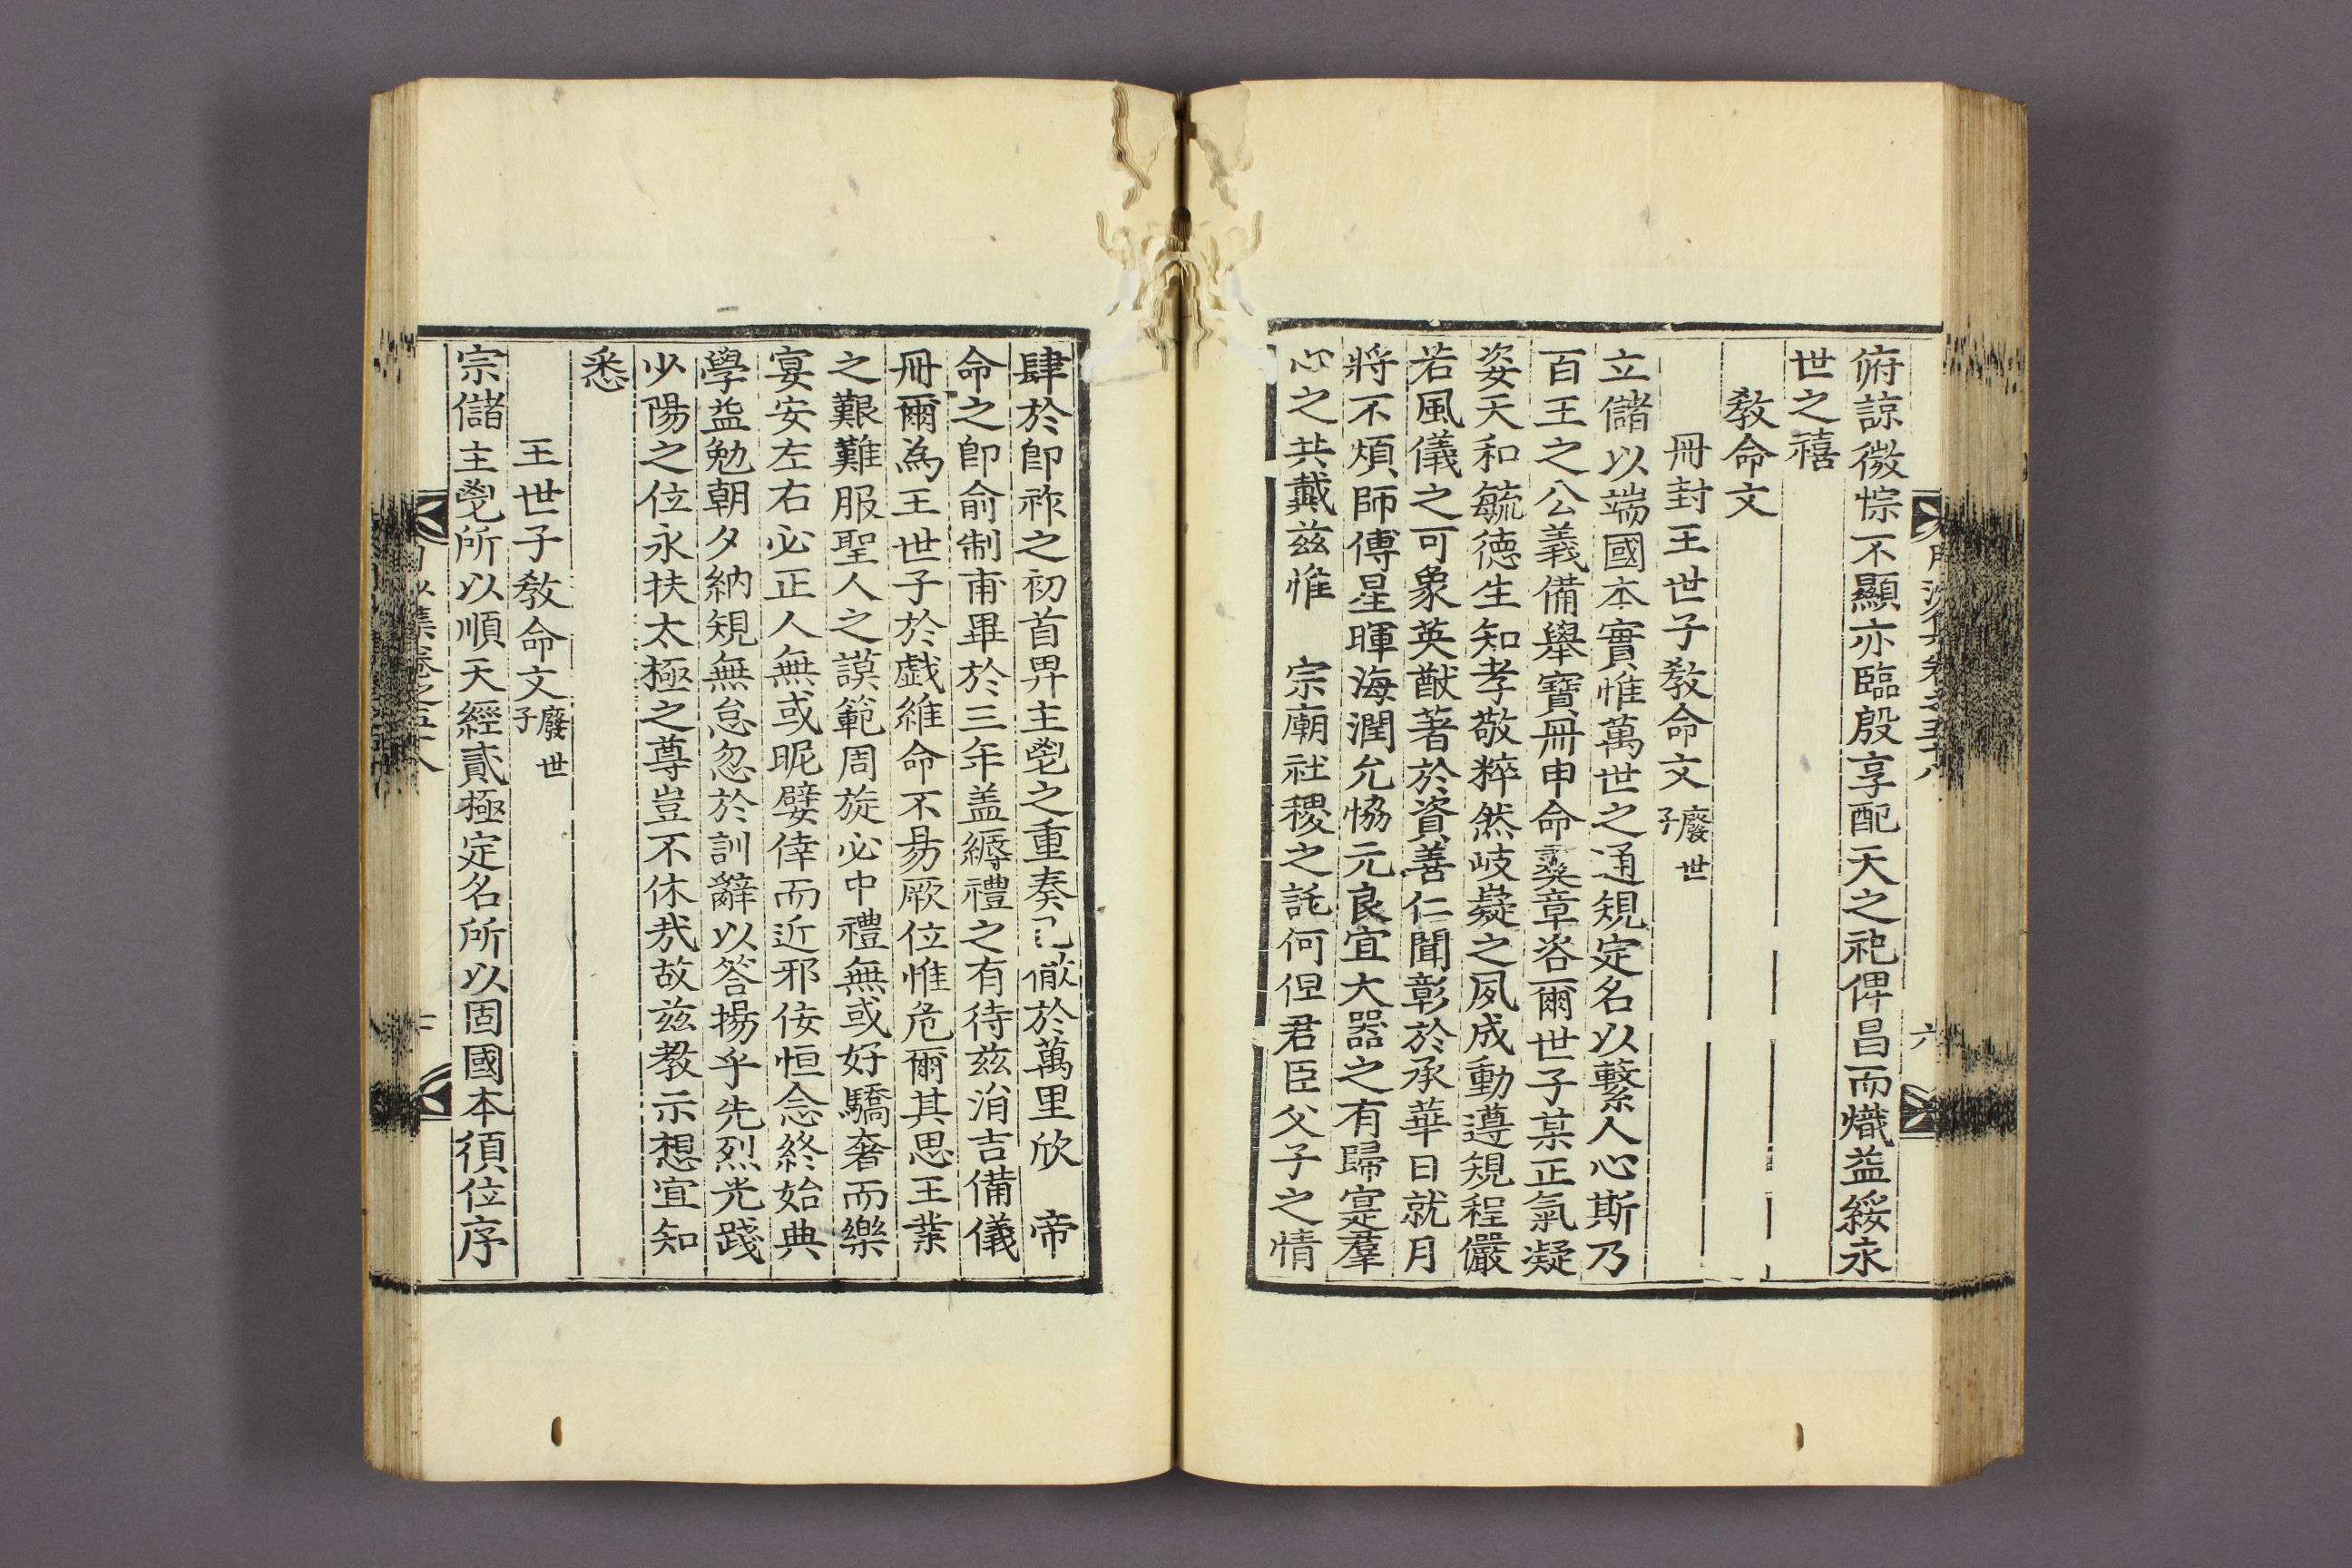 俯諒微悰不顯亦臨殷享配天之祀俾昌而熾益綏永
世之禧
敎命文
冊封王世子敎命文廢世子
立儲以端國本實惟萬世之通規定名以繫人心斯乃
百王之公義備舉寶冊申命彝章咨爾世子某正氣凝
姿天和毓德生知孝敬粹然岐嶷之夙成動遵規程儼
若風儀之可象英猷著於資善仁聞彰於承華日就月
將不煩師傅星暉海潤允恊元良宜大器之有歸寔羣
心之共戴玆惟 宗廟社稷之託何但君臣父子之情
肆於卽祚之初首畀主鬯之重奏已徹於萬里欣 帝
命之卽俞制甫畢於三年盖縟禮之有待玆涓吉備儀
冊爾爲王世子於戱維命不易厥位惟危爾其思王業
之艱難服聖人之謨範周旋必中禮無或好驕奢而樂
宴安左右必正人無或昵嬖倖而近邪侫恒念終始典
學益勉朝夕納規無怠忽於訓辭以答揚乎先烈光踐
少陽之位永扶太極之尊豈不休㢤故玆敎示想宜知
悉
王世子敎命文廢世子
宗儲主鬯所以順天經貳極定名所以固國本須位序